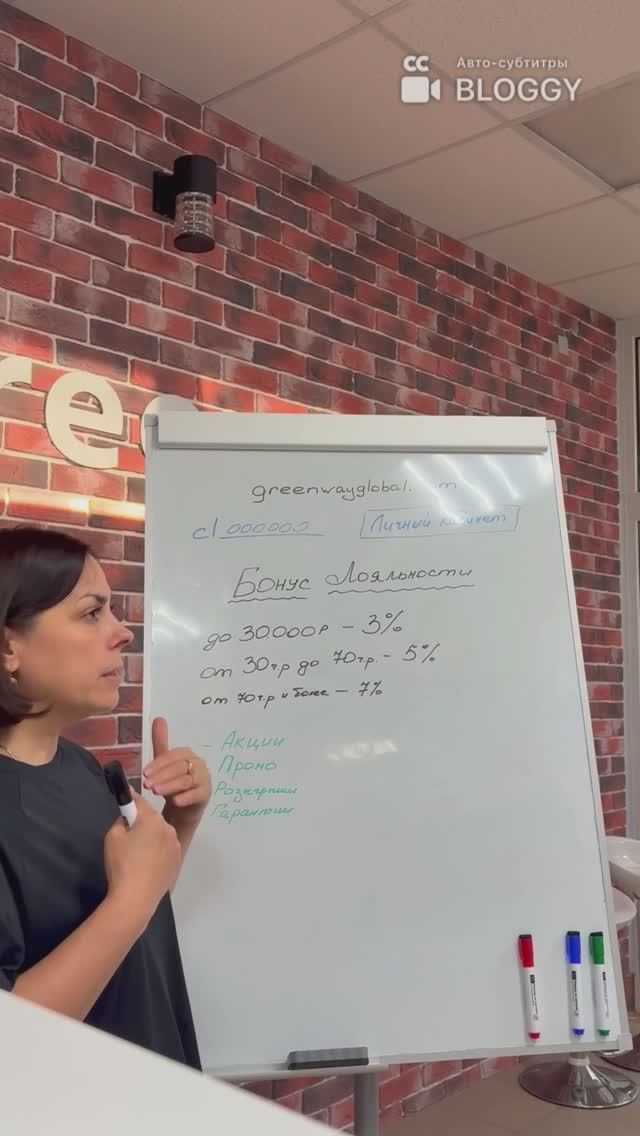 CC Авто-субтитры
BLOGGY
re
greenwayglobal. m
cl 000000 Личный кабинет
Бонус Лояльности
до 30.000р – 3%
от 30т.р до 70т.р. – 5%
от 70т.р и более – 7%
– Акции
Промо
Розыгрыши
Гарантии